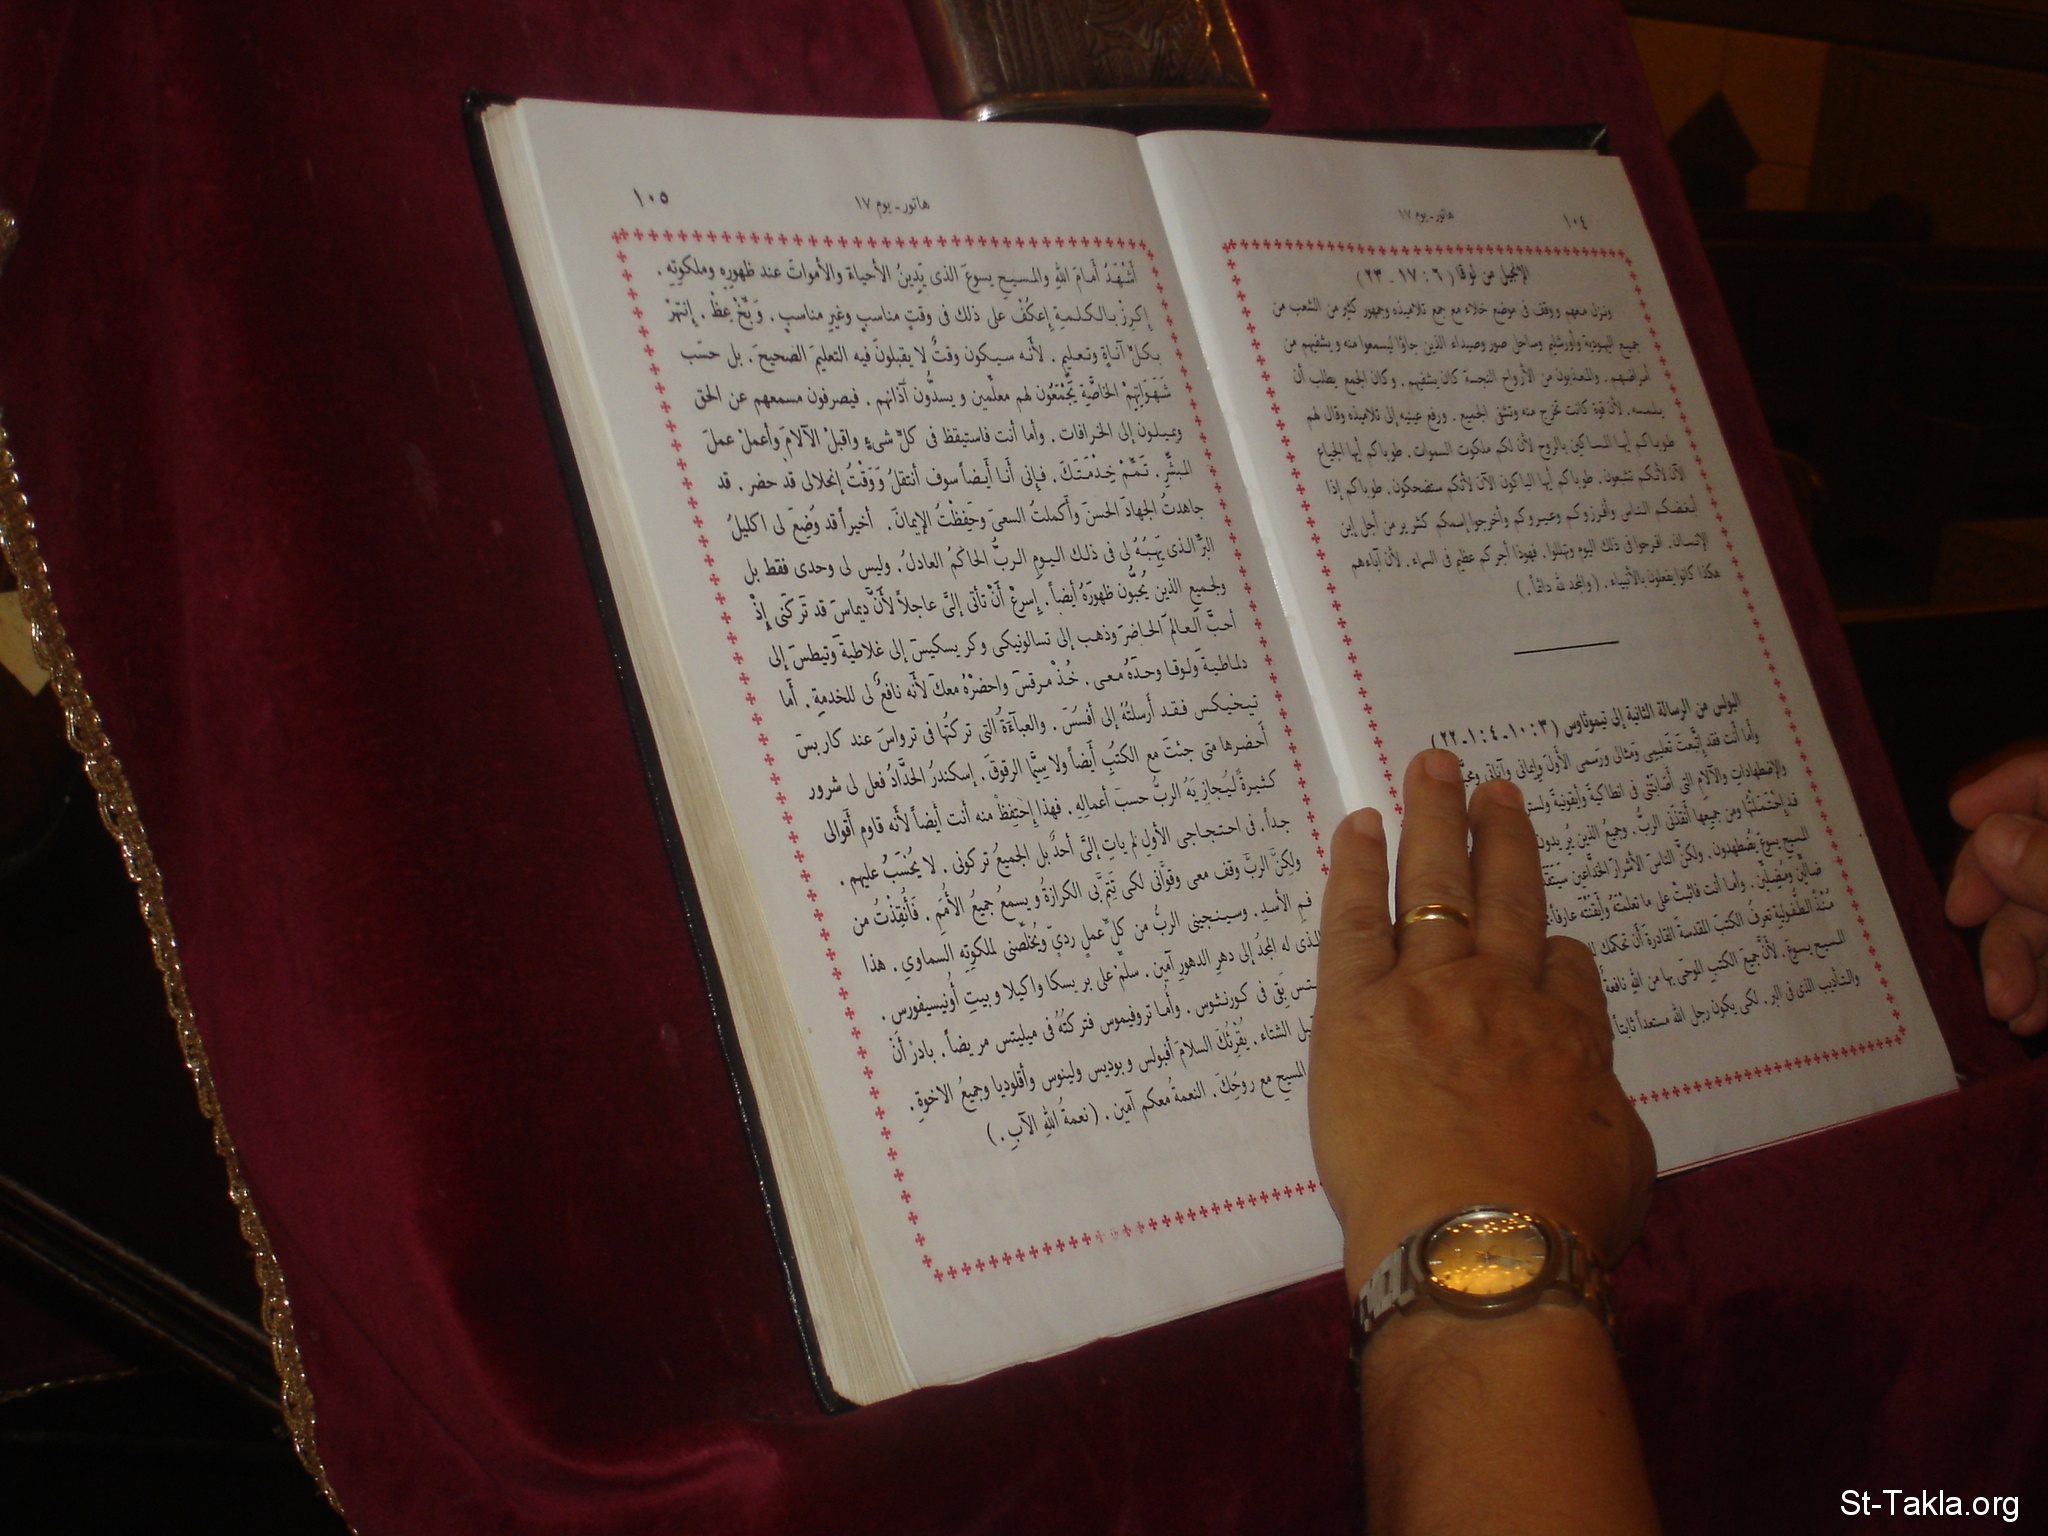 ١٠٤
هاتور - يوم ١٧
الإنجيل من لوقا ( ٦ : ١٧ - ٢٣ )
ونزل معهم ووقف فى موضع خلاء مع جمع تلاميذه وجمهور كثير من الشعب من
جميع اليهودية وأورشليم وساحل صور وصيداء الذين جاؤا ليسمعوا منه ويشفيهم من
أمراضهم . والمعذبون من الأرواح النجسة كان يشفيهم . وكان الجمع يطلب أن
يلمسه . لأن قوة كانت تخرج منه وتشفى الجميع . ورفع عينيه إلى تلاميذه وقال لهم
طوباكم أيها المساكين بالروح لأن لكم ملكوت السموات . طوباكم أيها الجياع
الآن لأنكم تشبعون . طوباكم أيها الباكون الآن لأنكم ستضحكون . طوباكم إذا
أبغضكم الناس وأفرزوكم وعيروكم وأخرجوا إسمكم كشرير من أجل إبن
الإنسان . افرحوا فى ذلك اليوم وتهللوا . فهوذا أجركم عظيم فى السماء . لأن آباءهم
هكذا كانوا يفعلون بالأنبياء . ( والمجد لله دائماً . )
البولس من الرسالة الثانية إلى تيموثاوس ( ٣ : ١٠ - ٤ : ١ - ٢٢ )
وأما أنت فقد إتَّبعتَ تعليمى ومثالى ورسمى الأولَ وإيمانى وأناتى
والإضطهادات والآلام التى أصابتْنى فى انطاكيةَ وأيقونيةَ
قد إحْتَمَلْتُها ومن جميعِها أنقذَنى الربُّ . وجميعُ الذين يريدون
المسيح يسوعَ يُضطهدون . ولكنَّ الناسَ الأشرارَ الخدَّاعين
ضالِّينَ ومُضلِّينَ . وأما أنت فاثبتْ على ما تعلمتَهُ وأيقنْتَهُ عارفاً
منذُ الطفوليةِ تعرفُ الكتبَ المقدسةَ القادرةَ أن تحكمك
المسيح يسوعَ . لأنَّ جميعَ الكتبِ الموحَى بها من اللهِ نافعةٌ
والتأديب الذى فى البر . لكى يكون رجل الله مستعداً ثابتاً
١٠٥
هاتور - يوم ١٧
أَشْهَدُ أمامَ اللهِ والمسيحِ يسوعَ الذى يَدِينُ الأحياءَ والأمواتَ عند ظهورِهِ وملكوتِهِ .
إكرِزْ بالكلمةِ إعكُفْ على ذلك فى وقتٍ مناسبٍ وغيرِ مناسبٍ . وَبِّخْ عِظْ . إنتهِرْ
بكلِّ آناةٍ وتعليمٍ . لأنه سيكون وقتٌ لا يقبلونَ فيه التعليمَ الصحيحَ . بل حسَب
شَهَوَاتِهِمْ الخاصَّةِ يَجْمَعُون لهم معلِّمين ويسدُّون آذانهم . فيصرفون مسمعهم عن الحق
ويميلون إلى الخرافات . وأما أنت فاستيقظ فى كلِّ شىءٍ واقبلْ الآلامَ وأعملْ عملَ
المبشِّرِ . تَمِّمْ خِدْمَتَكَ . فإنى أنا أيضاً سوف أنتقلُ وَوَقْتُ إنحلالى قد حضر . قد
جاهدتُ الجهادَ الحسنَ وأكملتُ السعىَ وحفِظْتُ الإيمانَ . أخيراً قد وُضِعَ لى اكليلُ
البرِّ الذى يَهَبُهُ لى فى ذلك اليومِ الربُّ الحاكمُ العادلُ . وليس لى وحدى فقط بل
ولجميعِ الذين يُحبُّون ظهورَهُ أيضاً . إسرعْ أنْ تأتى إلىَّ عاجلاً لأنَّ ديماسَ قد تركَنى إذْ
أحبَّ العالمَ الحاضرَ وذهب إلى تسالونيكى وكريسكيسَ إلى غلاطيةَ وتيطسَ إلى
دلماطيةَ ولوقا وحدَهُ معى . خُذْ مرقسَ واحضِرْهُ معكَ لأنَّه نافعٌ لى للخدمةِ . أما
تيخيكس فقد أرسلتُهُ إلى أفسُسَ . والعباءَةَ التى تركتُها فى ترواسَ عند كاربسَ
أحضرها متى جئتَ مع الكتُبِ أيضاً ولا سِيَّما الرقوقَ . إسكندرُ الحدَّادُ فعل لى شرور
كثيرةً ليُجازِيَهُ الربُّ حسبَ أعمالِهِ . فهذا إحتفِظْ منه أنت أيضاً لأنه قاوم أقوالى
جداً . فى احتجاجى الأولِ لم يأتِ إلىَّ أحدٌ بل الجميعُ تركونى . لا يُحْسَبُ عليهم .
ولكنَّ الربَّ وقف معى وقوَّانى لكى تَتِمَّ بى الكرازةُ ويسمعُ جميعُ الأُمَمِ . فَأُنقِذْتُ من
فمِ الأسدِ . وسينجينى الربُّ من كلِّ عملٍ ردىٍّ ويُخلِّصُنى لملكوتِهِ السماوى . هذا
الذى له المجدُ إلى دهرِ الدهورِ آمين . سلِّمْ على بريسكا واكيلا وبيتِ أُونيسيفورس .
بَقِىَ فى كورنثوس . وأما تروفيموس فتركتُهُ فى ميليتس مريضاً . بادرْ أنْ
الشتاء . يُقرِئُكَ السلامَ أفبولس وبوديس ولينوس وأقلوديا وجميعُ الاخوةِ .
المسيح مع روحِكَ . النعمةُ معكم آمين . ( نعمةُ اللهِ الآبِ . )
St-Takla.org